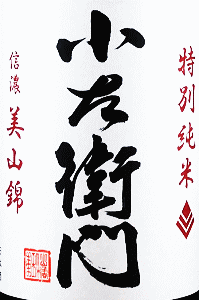 特別純米
小左衛門
信濃
美山錦